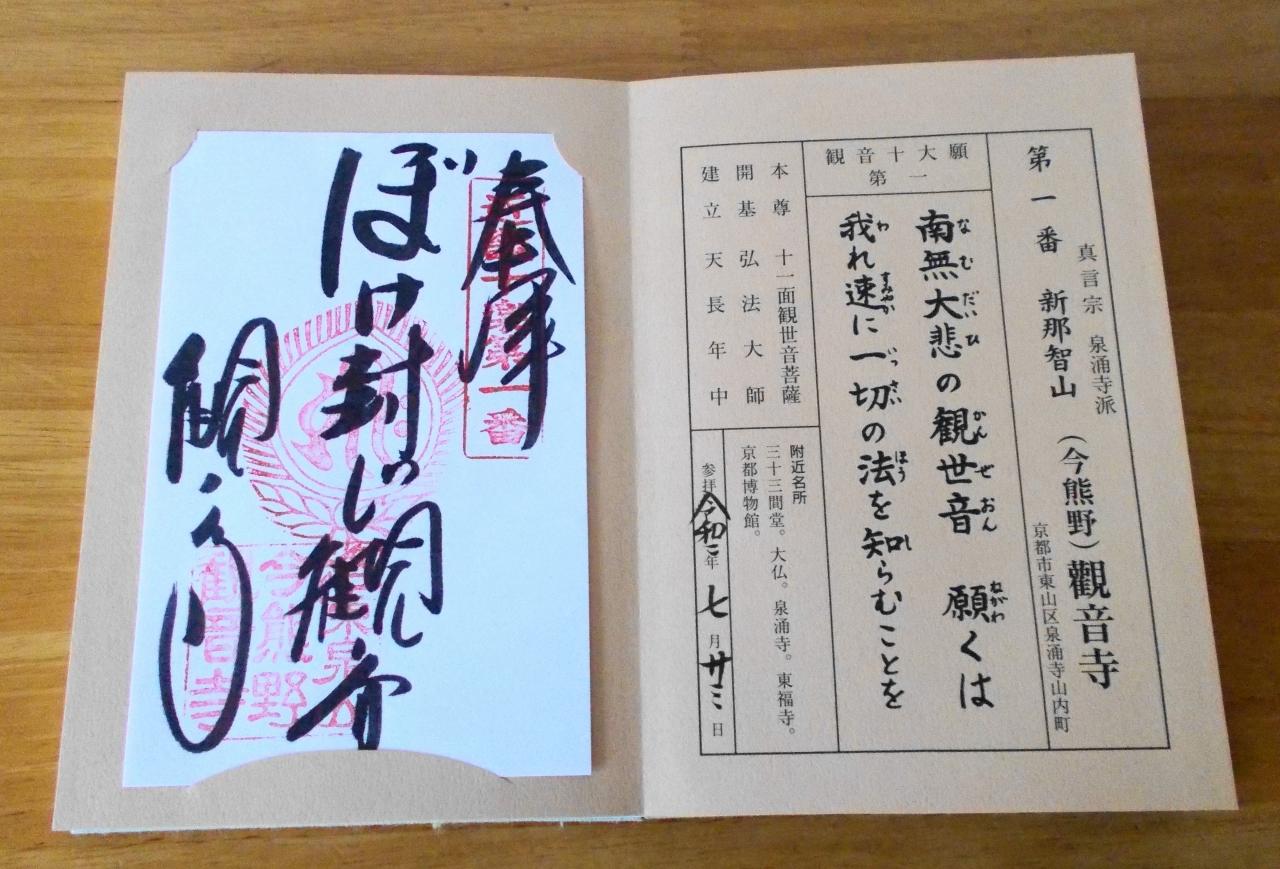 第一番 新那智山 (今熊野)觀音寺
真言宗 泉涌寺派
京都市東山区泉涌寺山内町
観音十大願
第一
南無大悲の観世音 願くは
なむだいひ かんぜおん ねがわ
我れ速に一切の法を知らむことを
わ すみやか いっさい ほう し
本尊 十一面観世音菩薩
開基 弘法大師
建立 天長年中
附近名所
三十三間堂。大仏。泉涌寺。東福寺。
京都博物館。
参拝 令和二年 七月廿三日
奉拝
第一番
ぼけ封じ
今熊野
観音寺